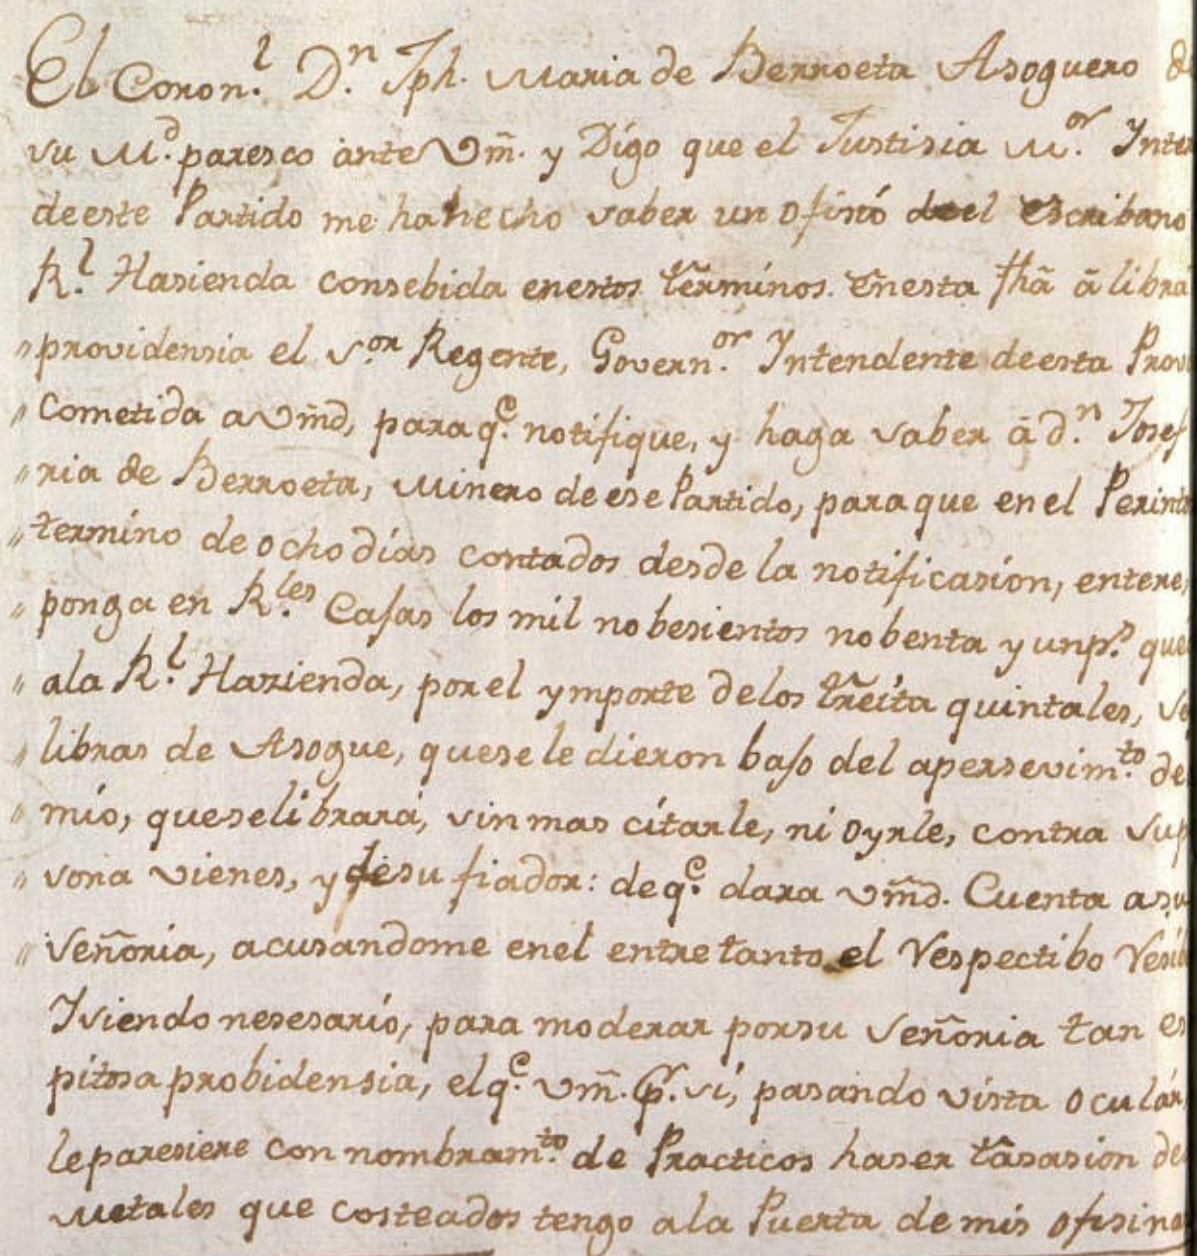 El Coron.l D.n Jph. Maria de Berroeta Asoguero de
su M.d paresco ante Vm̃. y Dígo que el Justisia M.or Inte
de este Partido me ha hecho saber un ofisió de el escribano
R.l Hasienda consebida en estos t̃erminos. En esta fhã á libra
" providensia el S.or Regente, Govern.or Yntendente de esta Prov
" Cometida a Vm̃d, para q.e notifique, y haga saber á d.n Josef
" ria de Berroeta, Minero de ese Partido, para que en el Perint
" termino de ocho días contados desde la notificasíon, entere,
" ponga en R.les Cajas los mil nobesientos nobenta y un p.s que
" a la R.l Hazienda, por el ymporte de los t̃reíta quintales, se
" libras de Asogue, que se le dieron bajo del apersevim.to de
" mío, que se líbrará, sin mas cítarle, ni oyrle, contra su p
" sona vienes, y de su fiador: de q.e dara Vm̃d. Cuenta a su
" Señoria, acusandome en el entre tanto el Respectibo Resiv
Y siendo nesesarío, para moderar por su Señoria tan es
pítosa probidensia, el q.e Vm̃. p.r sí, pasando vista ocular
le paresiere con nombram.to de Practicos haser tásasion de
Metales que costeados tengo a la Puerta de mis ofisina